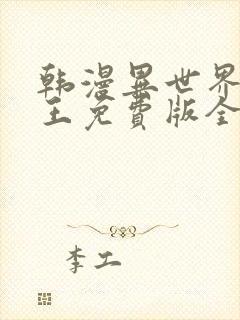 韩漫異世界
王免費版全
李工